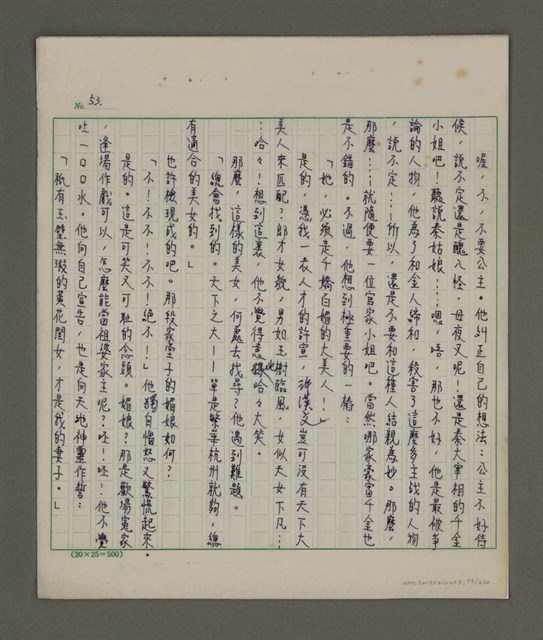 No. 53.
喔，不，不要公主。他糾正自己的想法：公主不好侍
候，說不定還是醜八怪，母夜叉呢！還是秦太宰相的千金
小姐吧！聽說秦姑娘……嗯，唔，那也不好，他是最被爭
論的人物，他為了和金人締和，殺害了這麼多主戰的人物
，說不定……所以，還是不要和這種人結親為妙。那麼，
那麼……就隨便要一位官家小姐吧。當然哪家豪富千金也
是不錯的。不過，他想到極重要的一樁：
「她，必須是千嬌白媚的大美人！」
是的，憑我一表人才的許宣，許漢文豈可沒有天下大
美人來匹配？郎才女貌，男如玉樹臨風，女似天女下凡…
…哈々！想到這裏，他不覺得意地哈々大笑。
那麼，這樣的美女，何處去找尋？他遇到難題。
「總會找到的。天下之大——單是繁華杭州就夠，總
有適合的美女的。」
也許檢現成的吧。那段家堂子的媚娘如何？
「不！不！不！不！絕不！」他獨自惱怒又驚慌起來。
是的。這是可笑又可恥的念頭。媚娘？那是歡場冤家
，逢場作戲可以，怎麼能當祖婆家主呢？呸！呸！他不覺
吐一口口水。他向自己宣告，也是向天地神靈作誓：
「祇有玉潔無瑕的黃花閨女，才是我的妻子。」
(20×25=500)